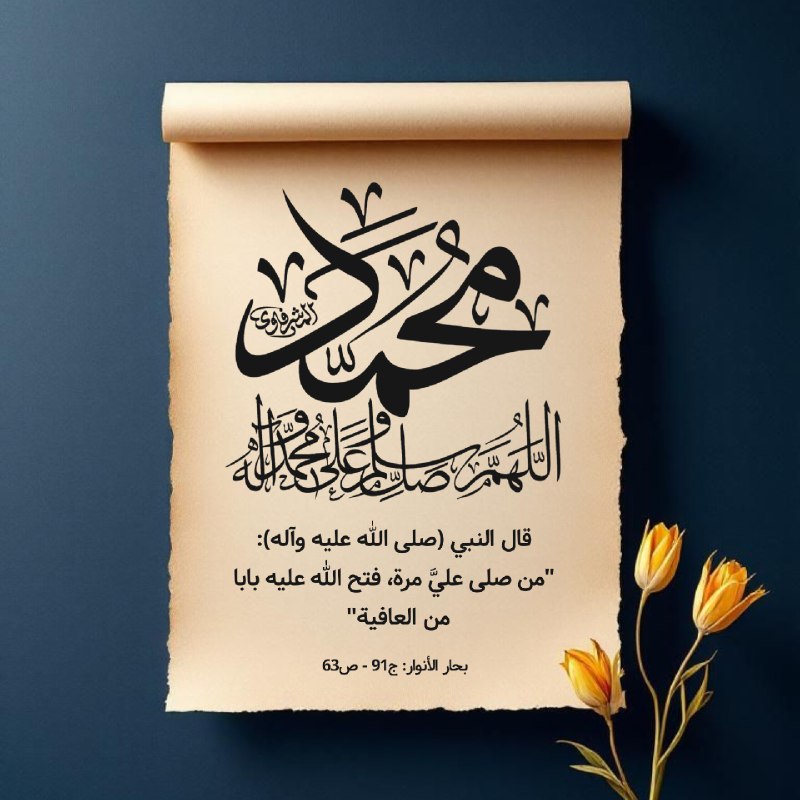 محمد
المشرفاوي
اللهم صل وسلم على محمد وآله
قال النبي (صلى الله عليه وآله):
"من صلى عليَّ مرة، فتح الله عليه بابا
من العافية"
بحار الأنوار: ج91 - ص63